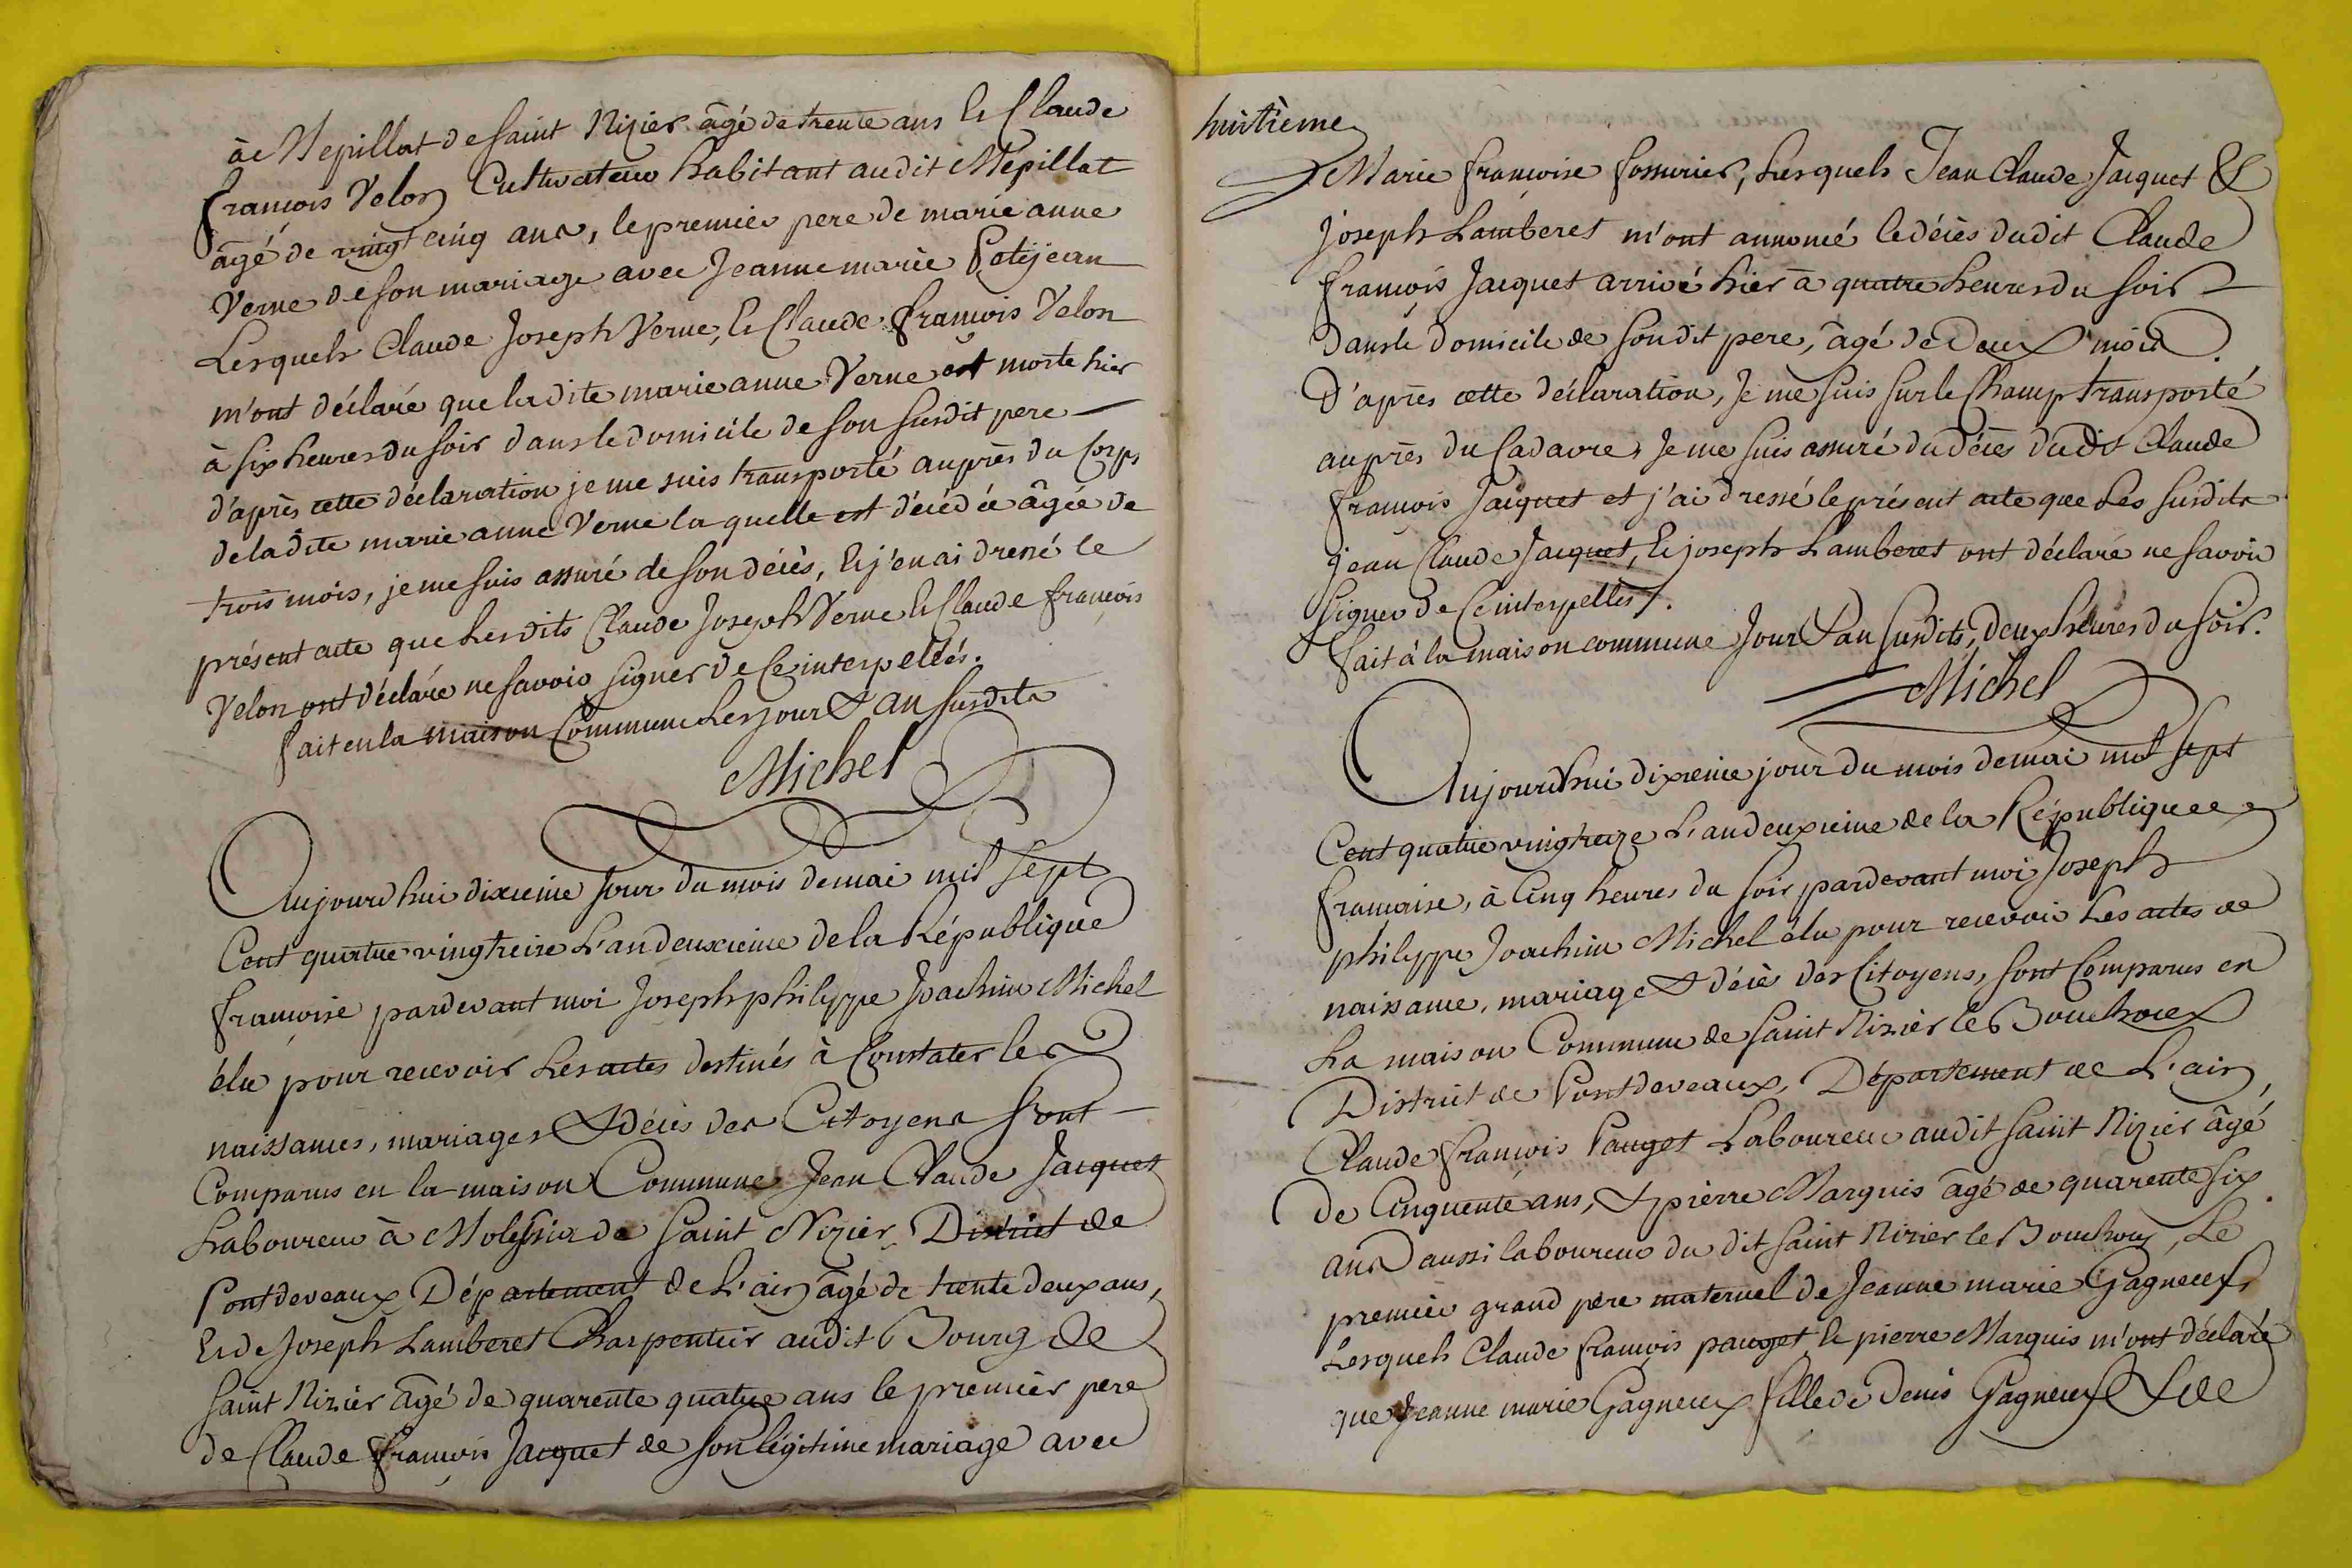 à Mepillat de Saint Nizier âgé de trente ans Et Claude
françois Velon Cultivateur habitant audit Mépillat
âgé de vingt cinq ans, le premier pere de marie anne
Verne de son mariage avec Jeanne marie Petijean
Lesquels Claude Joseph Verne, Et Claude françois Velon
m'ont déclaré que ladite marie anne Verne est morte hier
à six heures du soir dans le domicile de son susdit pere
d'après cette déclaration je me suis transporté auprès du Corps
de ladite marie anne Verne la quelle est décédée âgée de
trois mois, je me suis assuré de son décès, Et j'en ai dressé le
présent acte que Lesdits Claude Joseph Verne Et Claude françois
Velon ont déclaré ne savoir signer de Ce interpellés.
fait en la maison Commune Les jour & an susdits
Michel
Aujourd'hui dixieme Jour du mois de mai mil sept
Cent quatre vingt treize L'an deuxieme de la République
françoise pardevant moi Joseph philippe Joachim Michel
élu pour recevoir Les actes destinés à Constater les
naissances, mariages & décès des Citoyens sont
Comparus en la maison Commune Jean Claude Jacquet
Laboureur à de Saint Nizier District de
Pontdevaux Département de L'ain âgé de trente deux ans,
Et de Joseph Lamberet Charpentier audit Bourg de
Saint Nizier âgé de quarente quatre ans le premier pere
de Claude françois Jacquet de son légitime mariage avec
huitième
Marie françoise fossurier, Lesquels Jean Claude Jacquet &
Joseph Lamberet m'ont annoncé le décès dudit Claude
françois Jacquet arrivé hier à quatre heures du soir
dans le domicile de son dit pere, âgé de Deux mois.
D'après cette déclaration, Je me suis sur le Champ transporté
auprès du Cadavre, Je me suis assuré du décès dudit Claude
françois Jacquet et j'ai dressé le présent acte que Les susdits
Jean Claude Jacquet, Et joseph Lamberet ont déclaré ne savoir
signer de Ce interpellés.
fait à la maison commune Jour & an susdits, deux heures du soir.
Michel
Aujourd'hui dixieme jour du mois de mai mil sept
Cent quatre vingt treize L'an deuxieme de la République
française, à Cinq heures du soir pardevant moi Joseph
philippe Joachim Michel élu pour recevoir Les actes de
naissance, mariage & décès des Citoyens, sont Comparus en
La maison Commune de Saint Nizier le Bouchoux
District de Pontdeveaux, Département de L'ain,
Claude françois Pauget Laboureur audit Saint Nizier âgé
de Cinquente ans, & pierre Marguis âgé de quarente six
ans aussi laboureur du dit Saint Nizier le Bouchoux, Le
premier grand père maternel de Jeanne marie Gagneux,
Lesquels Claude françois pauget, Et pierre Marguis m'ont déclaré
que Jeanne marie Gagneux fille de Denis Gagneux & de